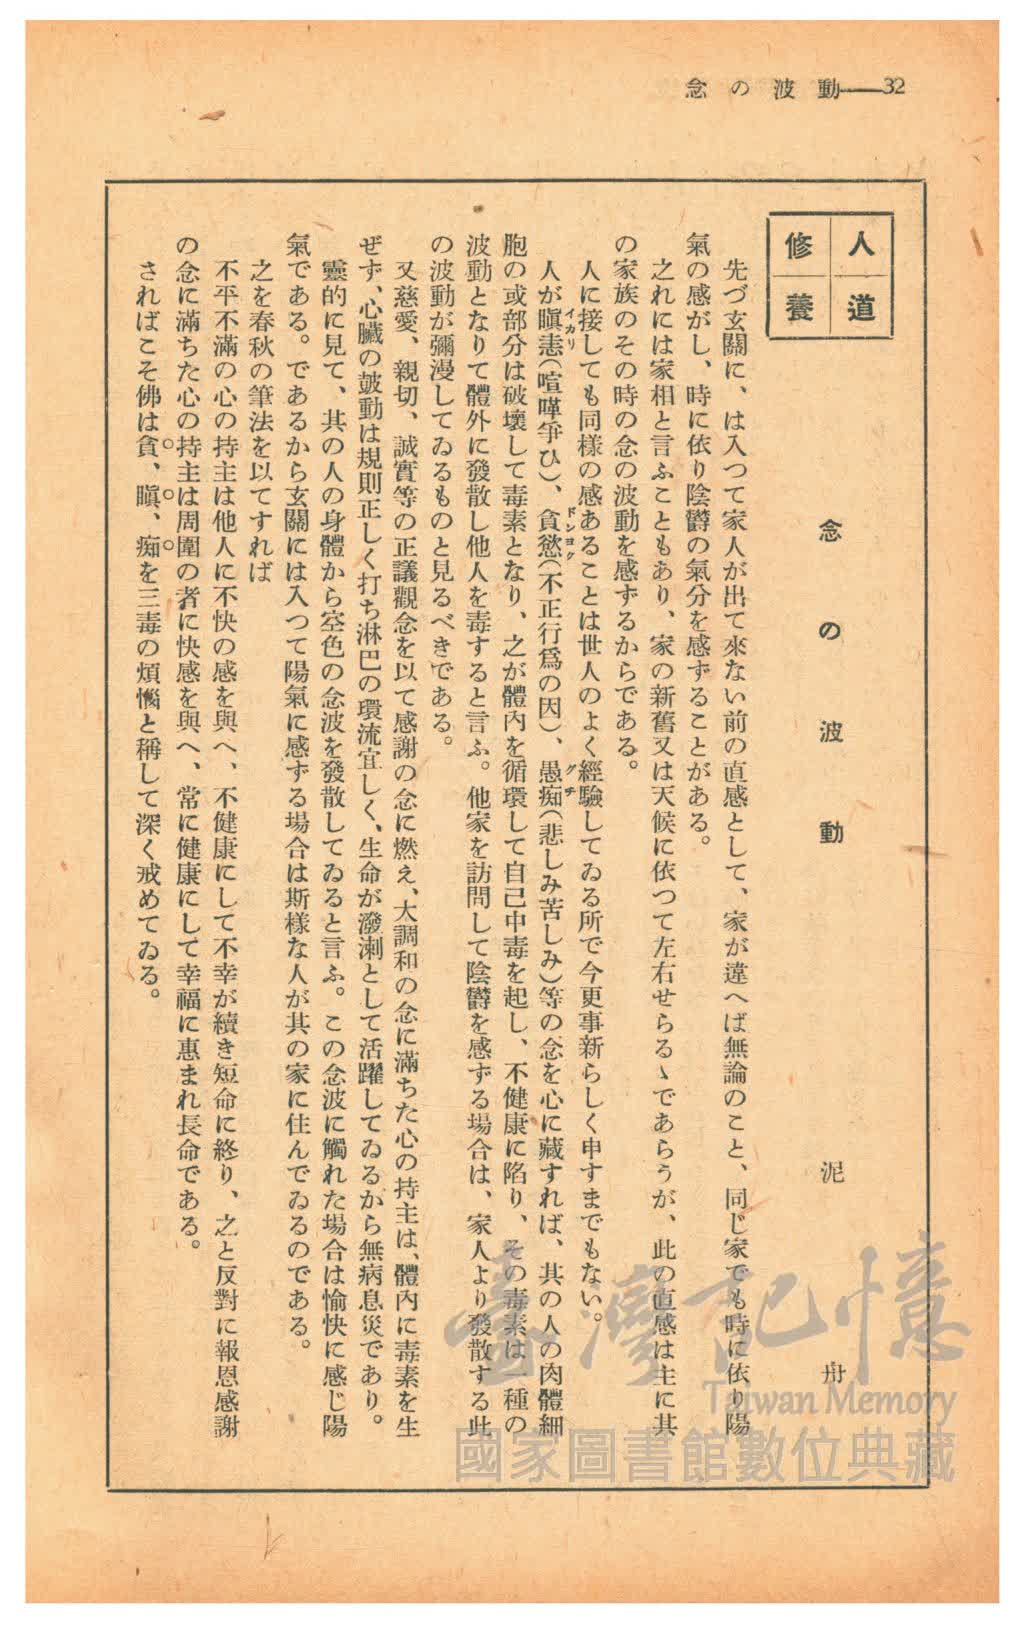 念の波動――32
人道
修養
念の波動
泥舟
先づ玄關に、は入つて家人が出て來ない前の直感として、家が違へば無論のこと、同じ家でも時に依り陽
氣の感がし、時に依り陰欝の氣分を感ずることがある。
之れには家相と言ふこともあり、家の新舊又は天候に依つて左右せらるゝであらうが、此の直感は主に其
の家族のその時の念の波動を感ずるからである。
人に接しても同樣の感あることは世人のよく經驗してゐる所で今更事新らしく申すまでもない。
人が瞋恚(喧嘩爭ひ)、貪慾(不正行爲の因)、愚痴(悲しみ苦しみ)等の念を心に藏すれば、其の人の肉體細
イカリ
ドンヨク
グチ
胞の或部分は破壞して毒素となり、之が體內を循環して自己中毒を起し、不健康に陷り、その毒素は一種の
波動となりて體外に發散し他人を毒すると言ふ。他家を訪問して陰欝を感ずる場合は、家人より發散する此
の波動が彌漫してゐるものと見るべきである。
又慈愛、親切、誠實等の正議觀念を以て感謝の念に燃え、大調和の念に滿ちた心の持主は、體內に毒素を生
ぜず、心臟の皷動は規則正しく打ち淋巴の環流宜しく、生命が潑溂として活躍してゐるから無病息災であり。
靈的に見て、其の人の身體から空色の念波を發散してゐると言ふ。この念波に觸れた場合は愉快に感じ陽
氣である。であるから玄關には入つて陽氣に感ずる場合は斯樣な人が其の家に住んでゐるのである。
之を春秋の筆法を以てすれば
不平不滿の心の持主は他人に不快の感を與へ、不健康にして不幸が續き短命に終り、之と反對に報恩感謝
の念に滿ちた心の持主は周圍の者に快感を與へ、常に健康にして幸福に惠まれ長命である。
さればこそ佛は貪、瞋、痴を三毒の煩惱と稱して深く戒めてゐる。
臺灣記憶
Taiwan Memory
國家圖書館數位典藏